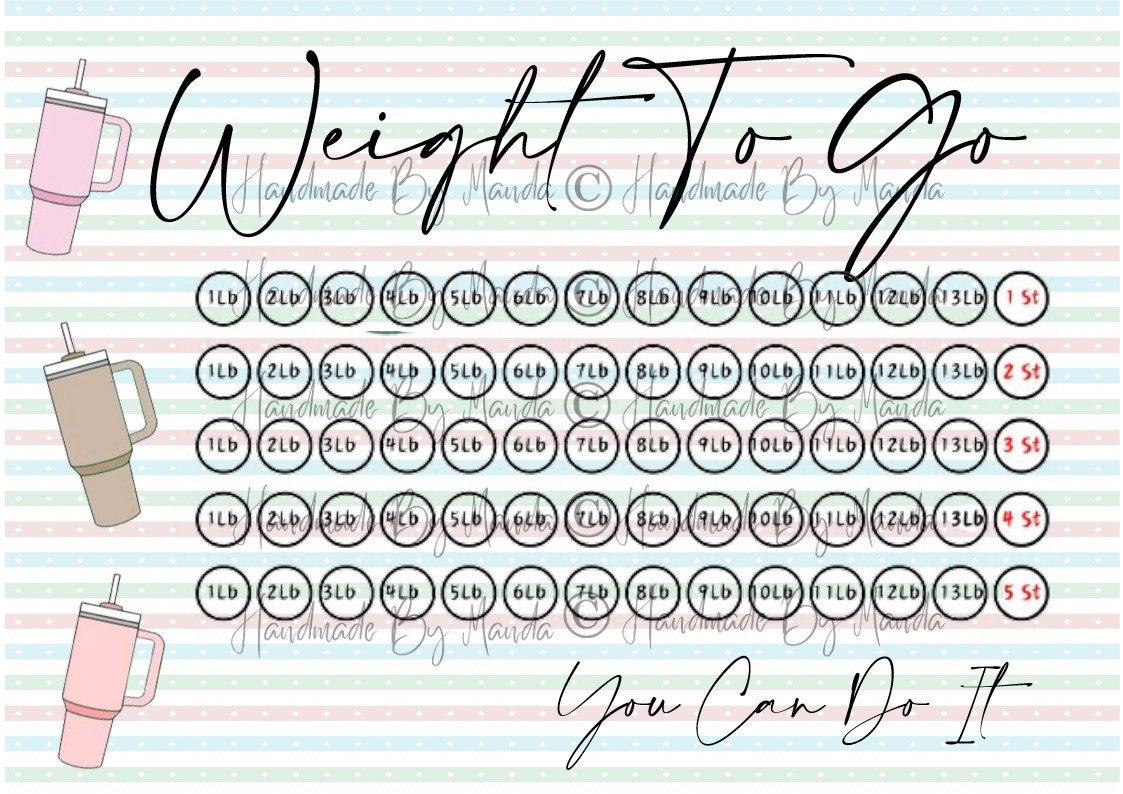 Weight To Go
Handmade By Manda © Handmade By Manda
Handmade By Manda © Handmade By Manda
1Lb 2Lb 3Lb 4Lb 5Lb 6Lb 7Lb 8Lb 9Lb 10Lb 11Lb 12Lb 13Lb 1 St
1Lb 2Lb 3Lb 4Lb 5Lb 6Lb 7Lb 8Lb 9Lb 10Lb 11Lb 12Lb 13Lb 2 St
Handmade By Manda © Handmade By Manda
1Lb 2Lb 3Lb 4Lb 5Lb 6Lb 7Lb 8Lb 9Lb 10Lb 11Lb 12Lb 13Lb 3 St
Handmade By Manda © Handmade By Manda
1Lb 2Lb 3Lb 4Lb 5Lb 6Lb 7Lb 8Lb 9Lb 10Lb 11Lb 12Lb 13Lb 4 St
1Lb 2Lb 3Lb 4Lb 5Lb 6Lb 7Lb 8Lb 9Lb 10Lb 11Lb 12Lb 13Lb 5 St
Handmade By Manda © Handmade By Manda
You Can Do It